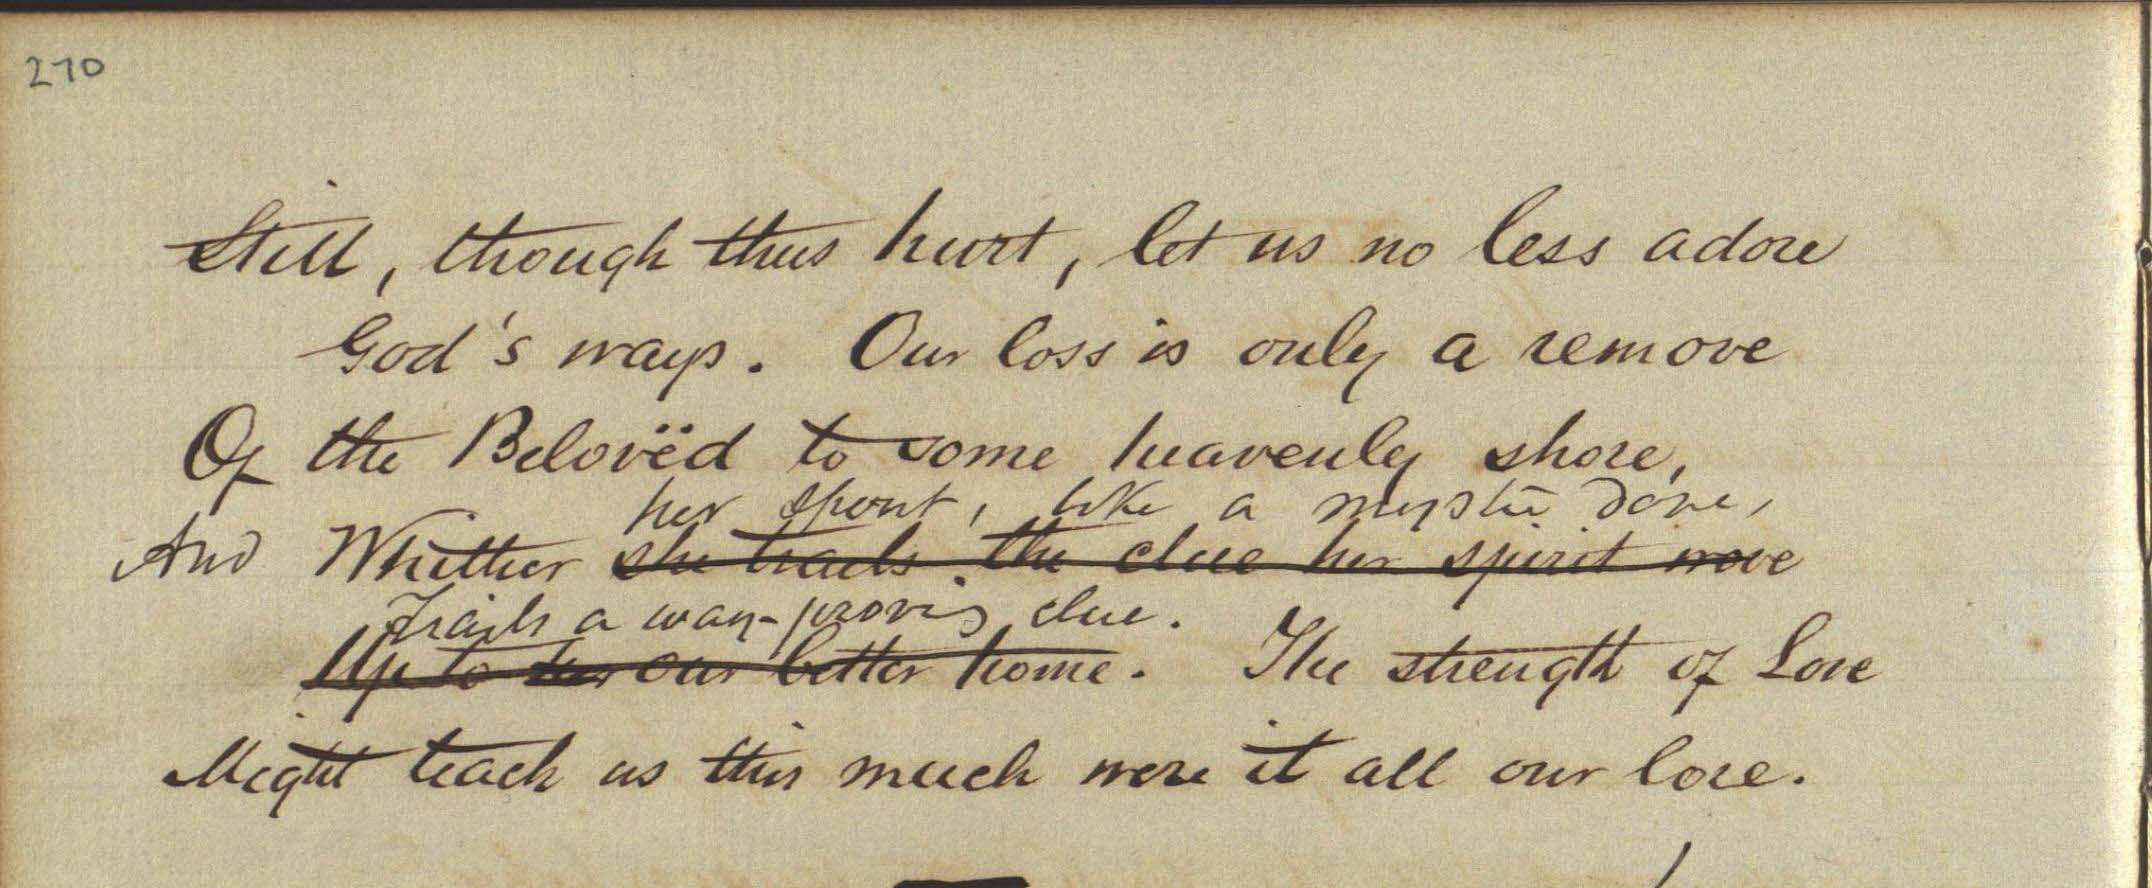 270
Still, though thus hurt, let us no less adore
God's ways. Our loss is only a remove
Of the Belovëd to some heavenly shore,
her spirit, like a mystic dove,
And Whither she trails the clue her spirit wove
Trails a way-proving clue.
Up to her our better home. The strength of Love
Might teach us this much were it all our lore.